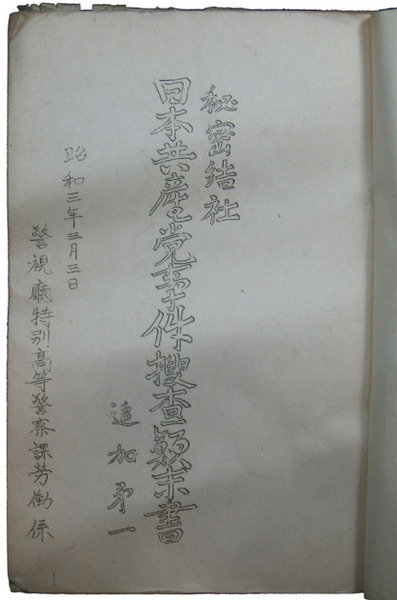 秘密結社
日本共産党事件搜査顛末書
追加㐧一
昭和三年三月三日
警視廳特別高等警察課労働係